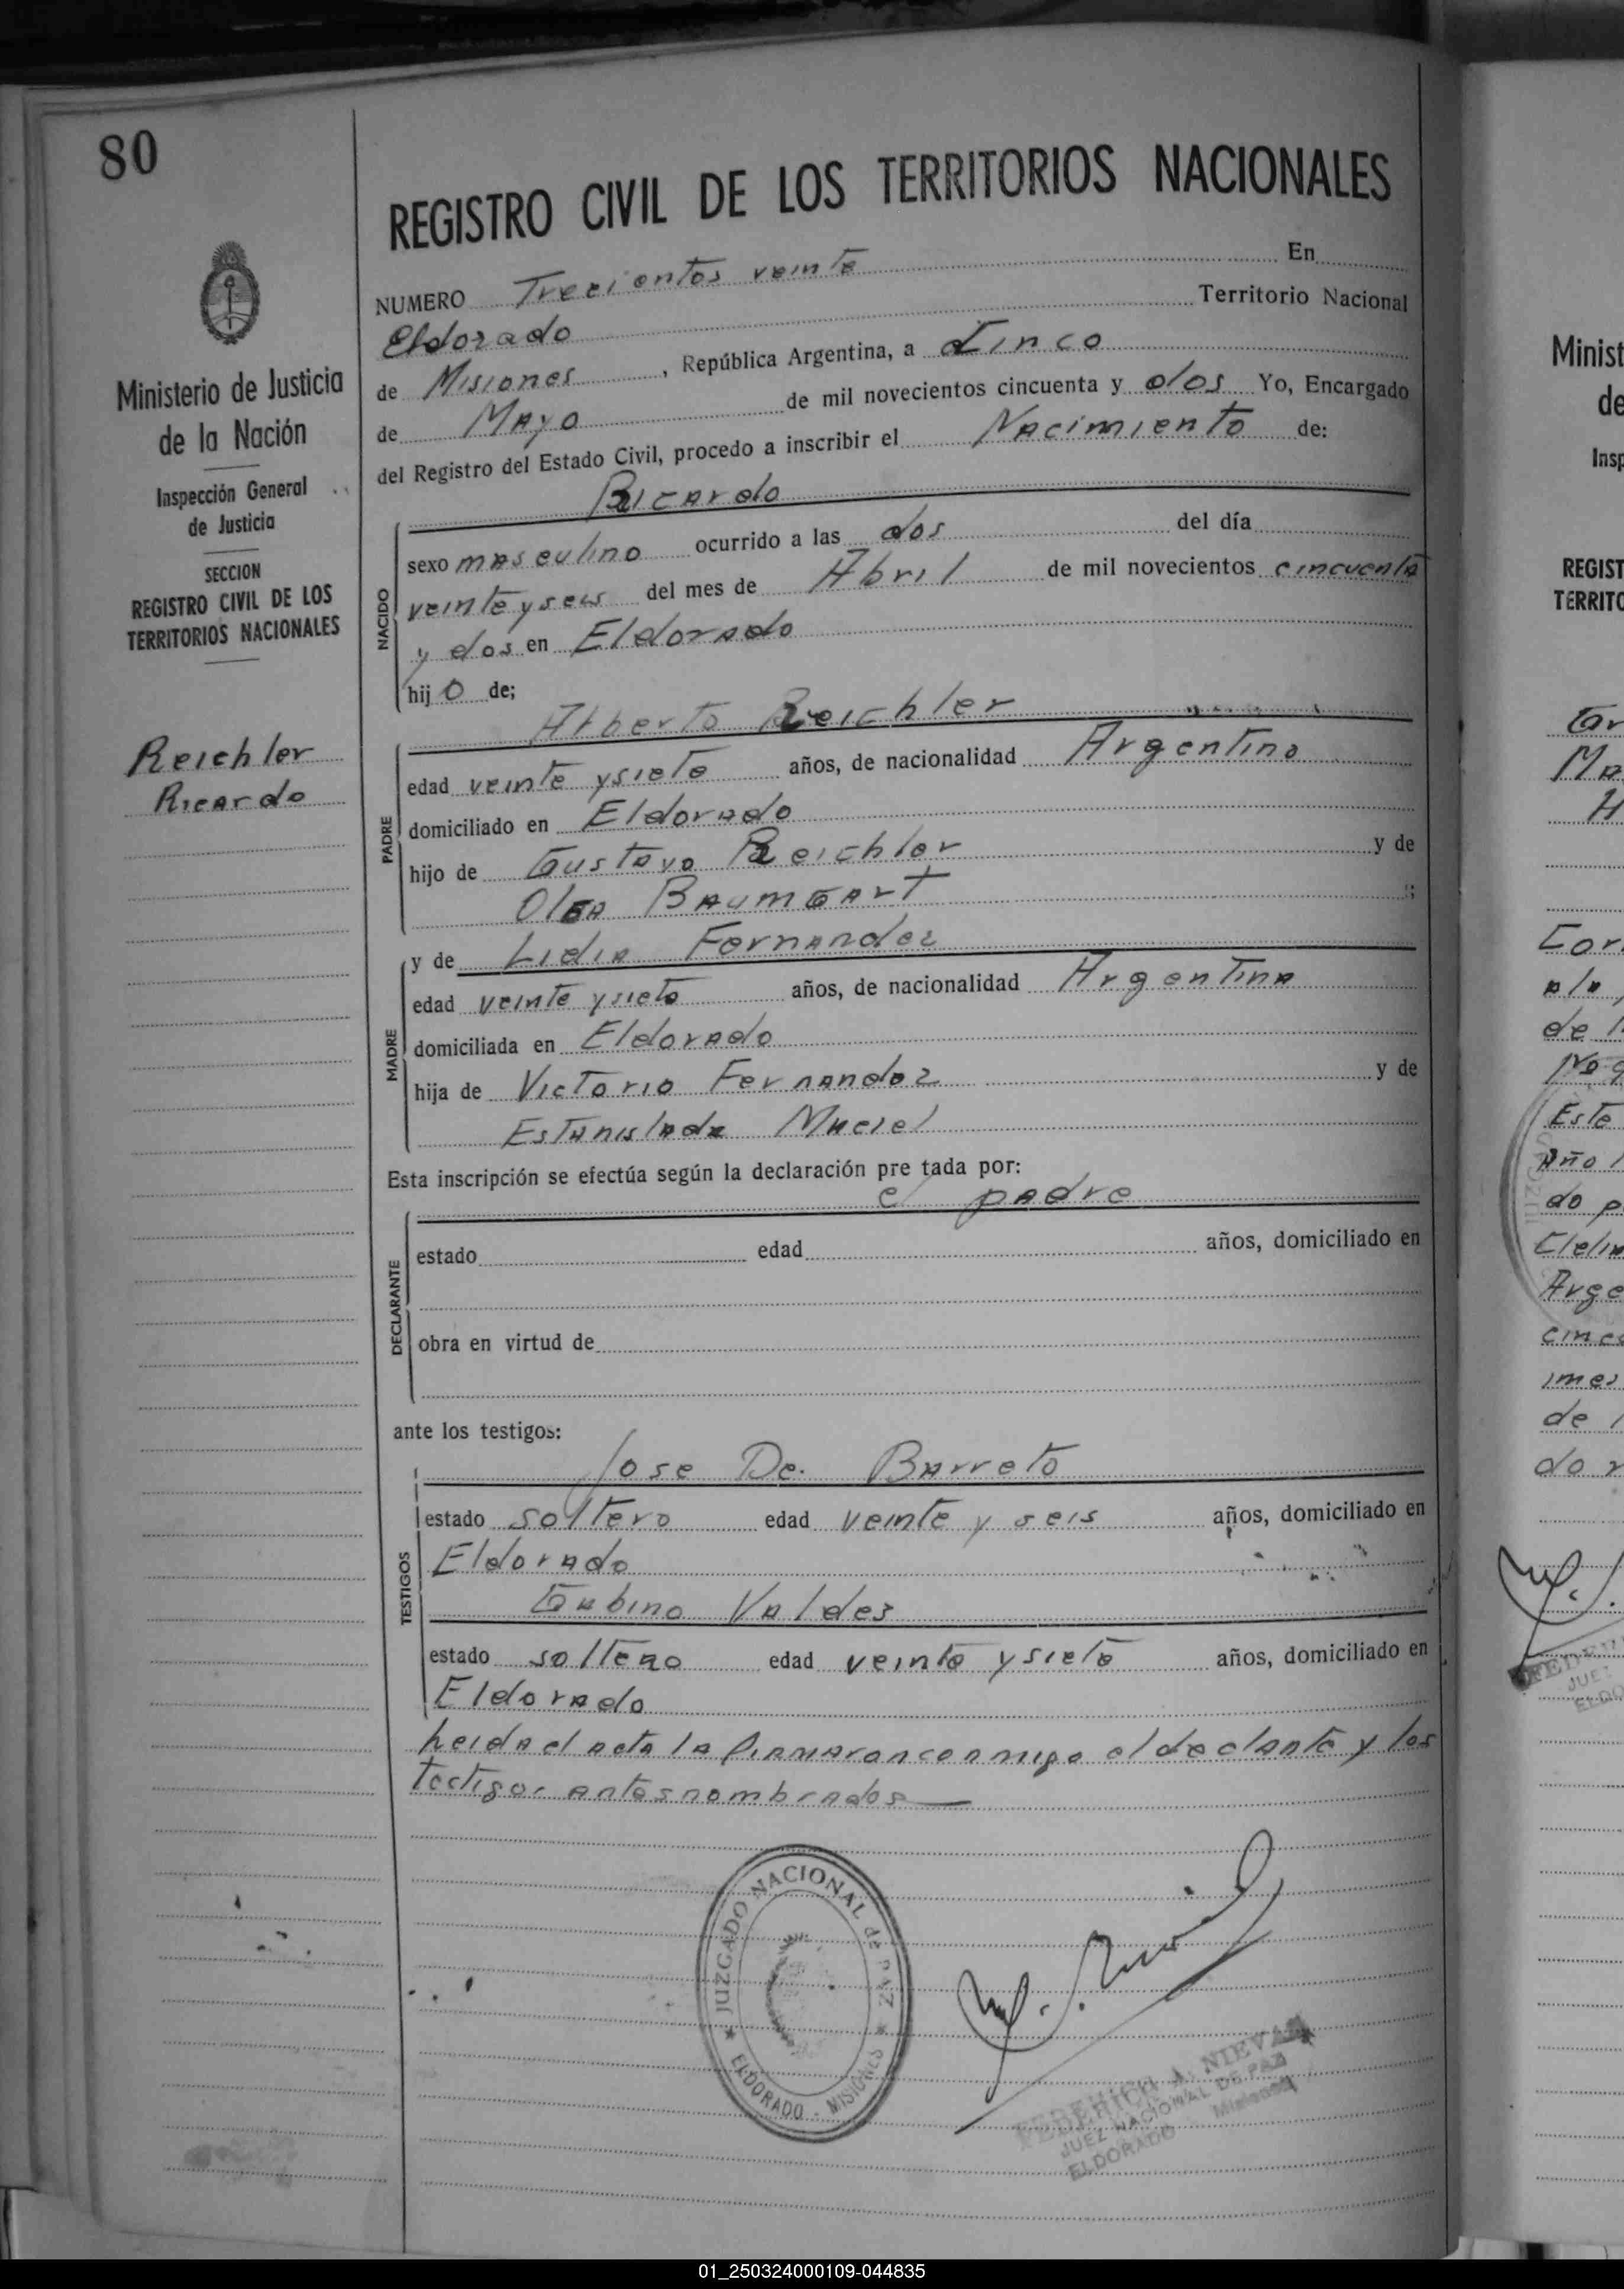 80
REGISTRO CIVIL DE LOS TERRITORIOS NACIONALES
Ministerio de Justicia
de la Nación
Inspección General
de Justicia
SECCION
REGISTRO CIVIL DE LOS
TERRITORIOS NACIONALES
Reichler
Ricardo
NUMERO Trecientos veinte En
Eldorado Territorio Nacional
de Misiones, República Argentina, a Cinco
de Mayo de mil novecientos cincuenta y dos Yo, Encargado
del Registro del Estado Civil, procedo a inscribir el Nacimiento de:
Ricardo
NACIDO
sexo masculino ocurrido a las dos del día
veinte y seis del mes de Abril de mil novecientos cincuenta
y dos en Eldorado
hijo de;
Alberto Reichler
PADRE
edad veinte y siete años, de nacionalidad Argentino
domiciliado en Eldorado
hijo de Gustavo Reichler y de
Olga Baumgart ;
MADRE
y de Lidia Fernandez
edad veinte y siete años, de nacionalidad Argentina
domiciliada en Eldorado
hija de Victorio Fernandez y de
Estanislada Maciel
Esta inscripción se efectúa según la declaración pre tada por:
el padre
DECLARANTE
estado edad años, domiciliado en
obra en virtud de
ante los testigos:
Jose De. Barreto
TESTIGOS
estado soltero edad veinte y seis años, domiciliado en
Eldorado
Gabino Valdes
estado soltero edad veinte y siete años, domiciliado en
Eldorado
Leida el acta la firmaran conmigo el declante y los
testigos antes nombrados
JUZGADO NACIONAL de PAZ
ELDORADO - MISIONES
FEDERICO A. NIEVAS
JUEZ NACIONAL DE PAZ
ELDORADO Misiones
Minist
de
Insp
REGIST
TERRITO
Ma
H
de
Este
Año
do p
Arge
de
do
JUEZ
ELDO
01_250324000109-044835